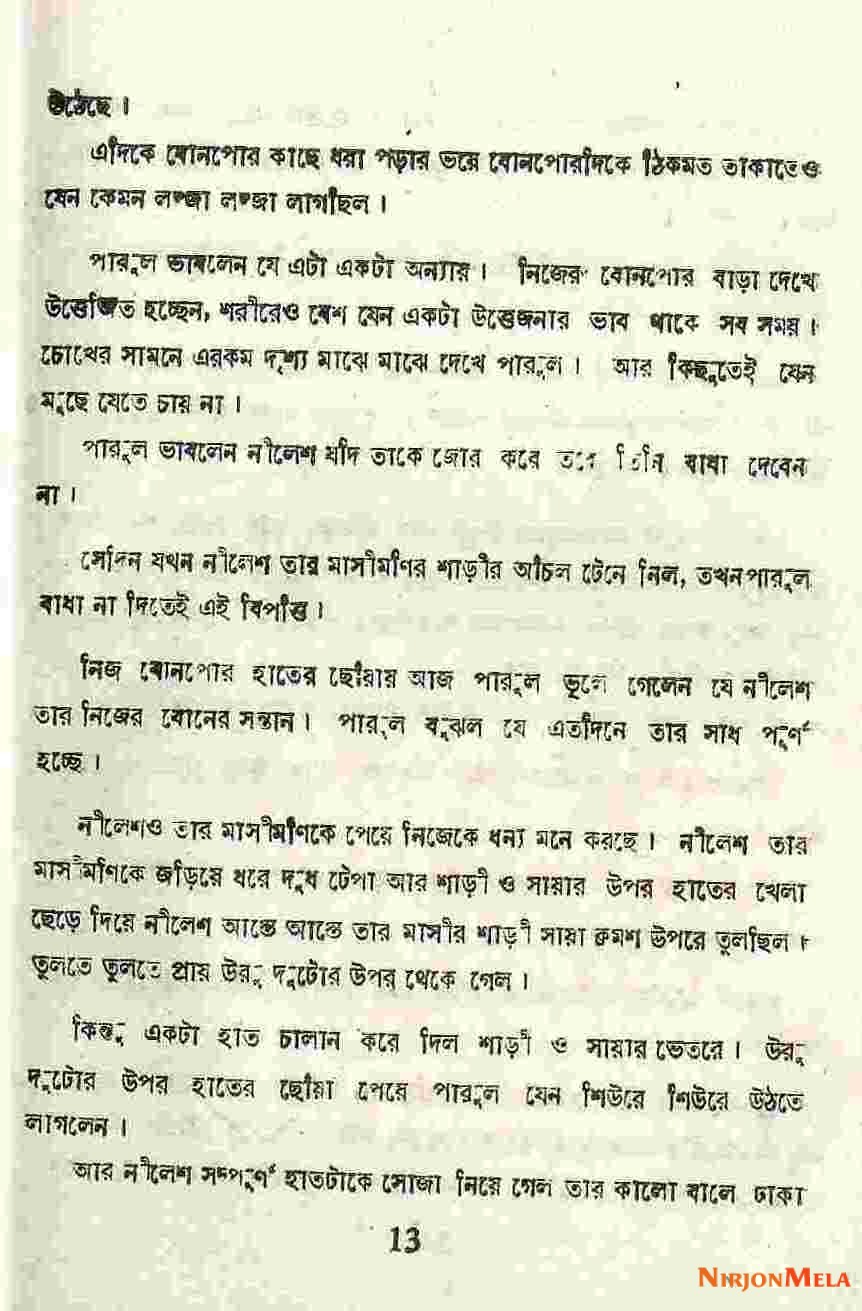 উঠেছে।
এদিকে বোনপোর কাছে ধরা পড়ার ভয়ে বোনপোরদিকে ঠিকমত তাকাতেও
যেন কেমন লজ্জা লজ্জা লাগছিল।
পারুল ভাবলেন যে এটা একটা অন্যায়। নিজের বোনপোর বাড়া দেখে
উত্তেজিত হচ্ছেন, শরীরেও বেশ যেন একটা উত্তেজনার ভাব থাকে সব সময়।
চোখের সামনে এরকম দৃশ্য মাঝে মাঝে দেখে পারুল। আর কিছুতেই যেন
মুছে যেতে চায় না।
পারুল ভাবলেন নীলেশ যদি তাকে জোর করে তবে তিনি বাধা দেবেন
না।
সেদিন যখন নীলেশ তার মাসীমণির শাড়ীর আঁচল টেনে নিল, তখনপারুল
বাধা না দিতেই এই বিপত্তি।
নিজ বোনপোর হাতের ছোঁয়ায় আজ পারুল ভুলে গেলেন যে নীলেশ
তার নিজের বোনের সন্তান। পারুল বুঝল যে এতদিনে তার সাধ পূর্ণ
হচ্ছে।
নীলেশও তার মাসীমণিকে পেয়ে নিজেকে ধন্য মনে করছে। নীলেশ তার
মাসীমণিকে জড়িয়ে ধরে দুধ টেপা আর শাড়ী ও সায়ার উপর হাতের খেলা
ছেড়ে দিয়ে নীলেশ আস্তে আস্তে তার মাসীর শাড়ী সায়া ক্রমশ উপরে তুলছিল।
তুলতে তুলতে প্রায় উরু দুটোর উপর থেকে গেল।
কিন্তু একটা হাত চালান করে দিল শাড়ী ও সায়ার ভেতরে। উরু
দুটোর উপর হাতের ছোঁয়া পেয়ে পারুল যেন শিউরে শিউরে উঠতে
লাগলেন।
আর নীলেশ সম্পূর্ণ হাতটাকে সোজা নিয়ে গেল তার কালো বালে ঢাকা
13
NIRJONMELA